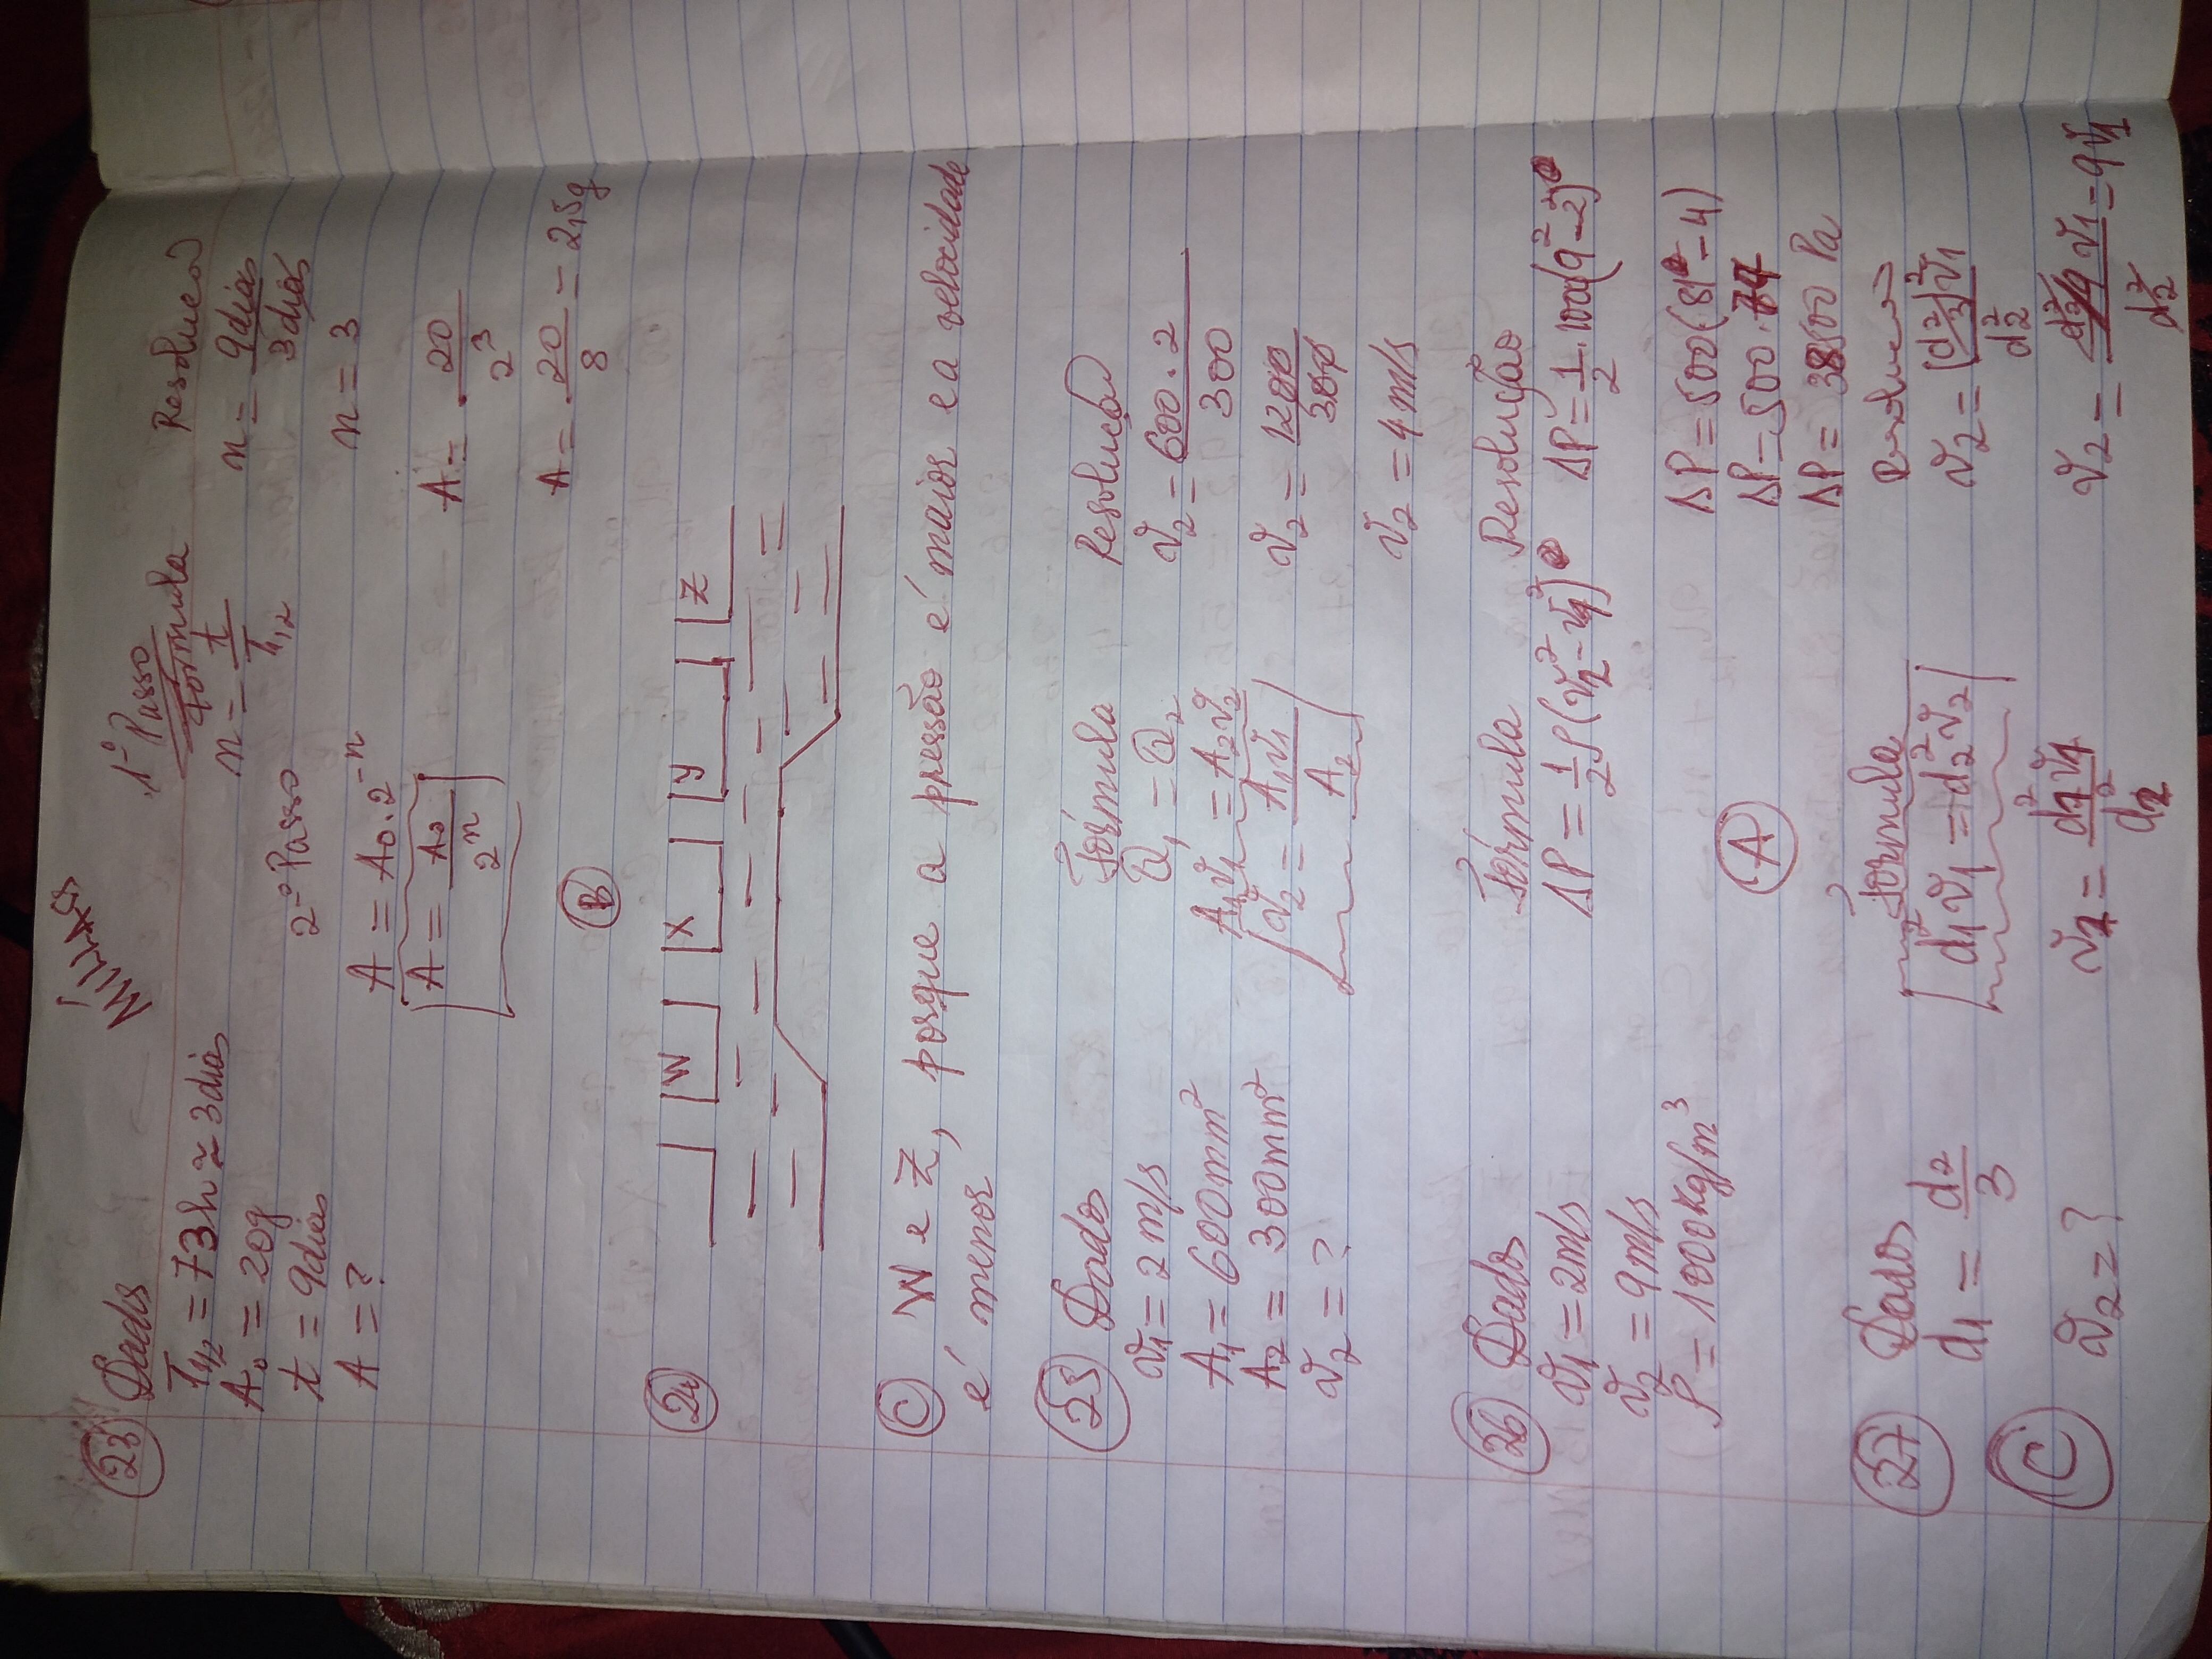 MÍLLAS
23 Dados
T1/2 = 73h ≃ 3dias
A₀ = 20g
t = 9dias
A = ?
1º Passo
Fórmula
n = t/T1/2
2º Passo
A = A₀.2⁻ⁿ
A = A₀/2ⁿ
B
Resolucao
n = 9dias/3dias
n = 3
A = 20/2³
A = 20/8 = 2,5g
24
W X Y Z
C W e Z, porque a pressão é maior e a velocidade
é menor
25 Dados
v₁ = 2m/s
A₁ = 600mm²
A₂ = 300mm²
v₂ = ?
Fórmula
Q₁ = Q₂
A₁v₁ = A₂v₂
v₂ = A₁v₁/A₂
Resolucao
v₂ = 600.2/300
v₂ = 1200/300
v₂ = 4m/s
26 Dados
v₁ = 2m/s
v₂ = 9m/s
ρ = 1000kg/m³
Fórmula
ΔP = 1/2 ρ(v₂² - v₁²)
A
Resolução
ΔP = 1/2 . 1000(9² - 2²)
ΔP = 500(81 - 4)
ΔP = 500.77
ΔP = 38500 Pa
27 Dados
d₁ = d₂/3
C v₂ = ?
Fórmula
d₁²v₁ = d₂²v₂
v₂ = d₁²v₁/d₂²
Resolucao